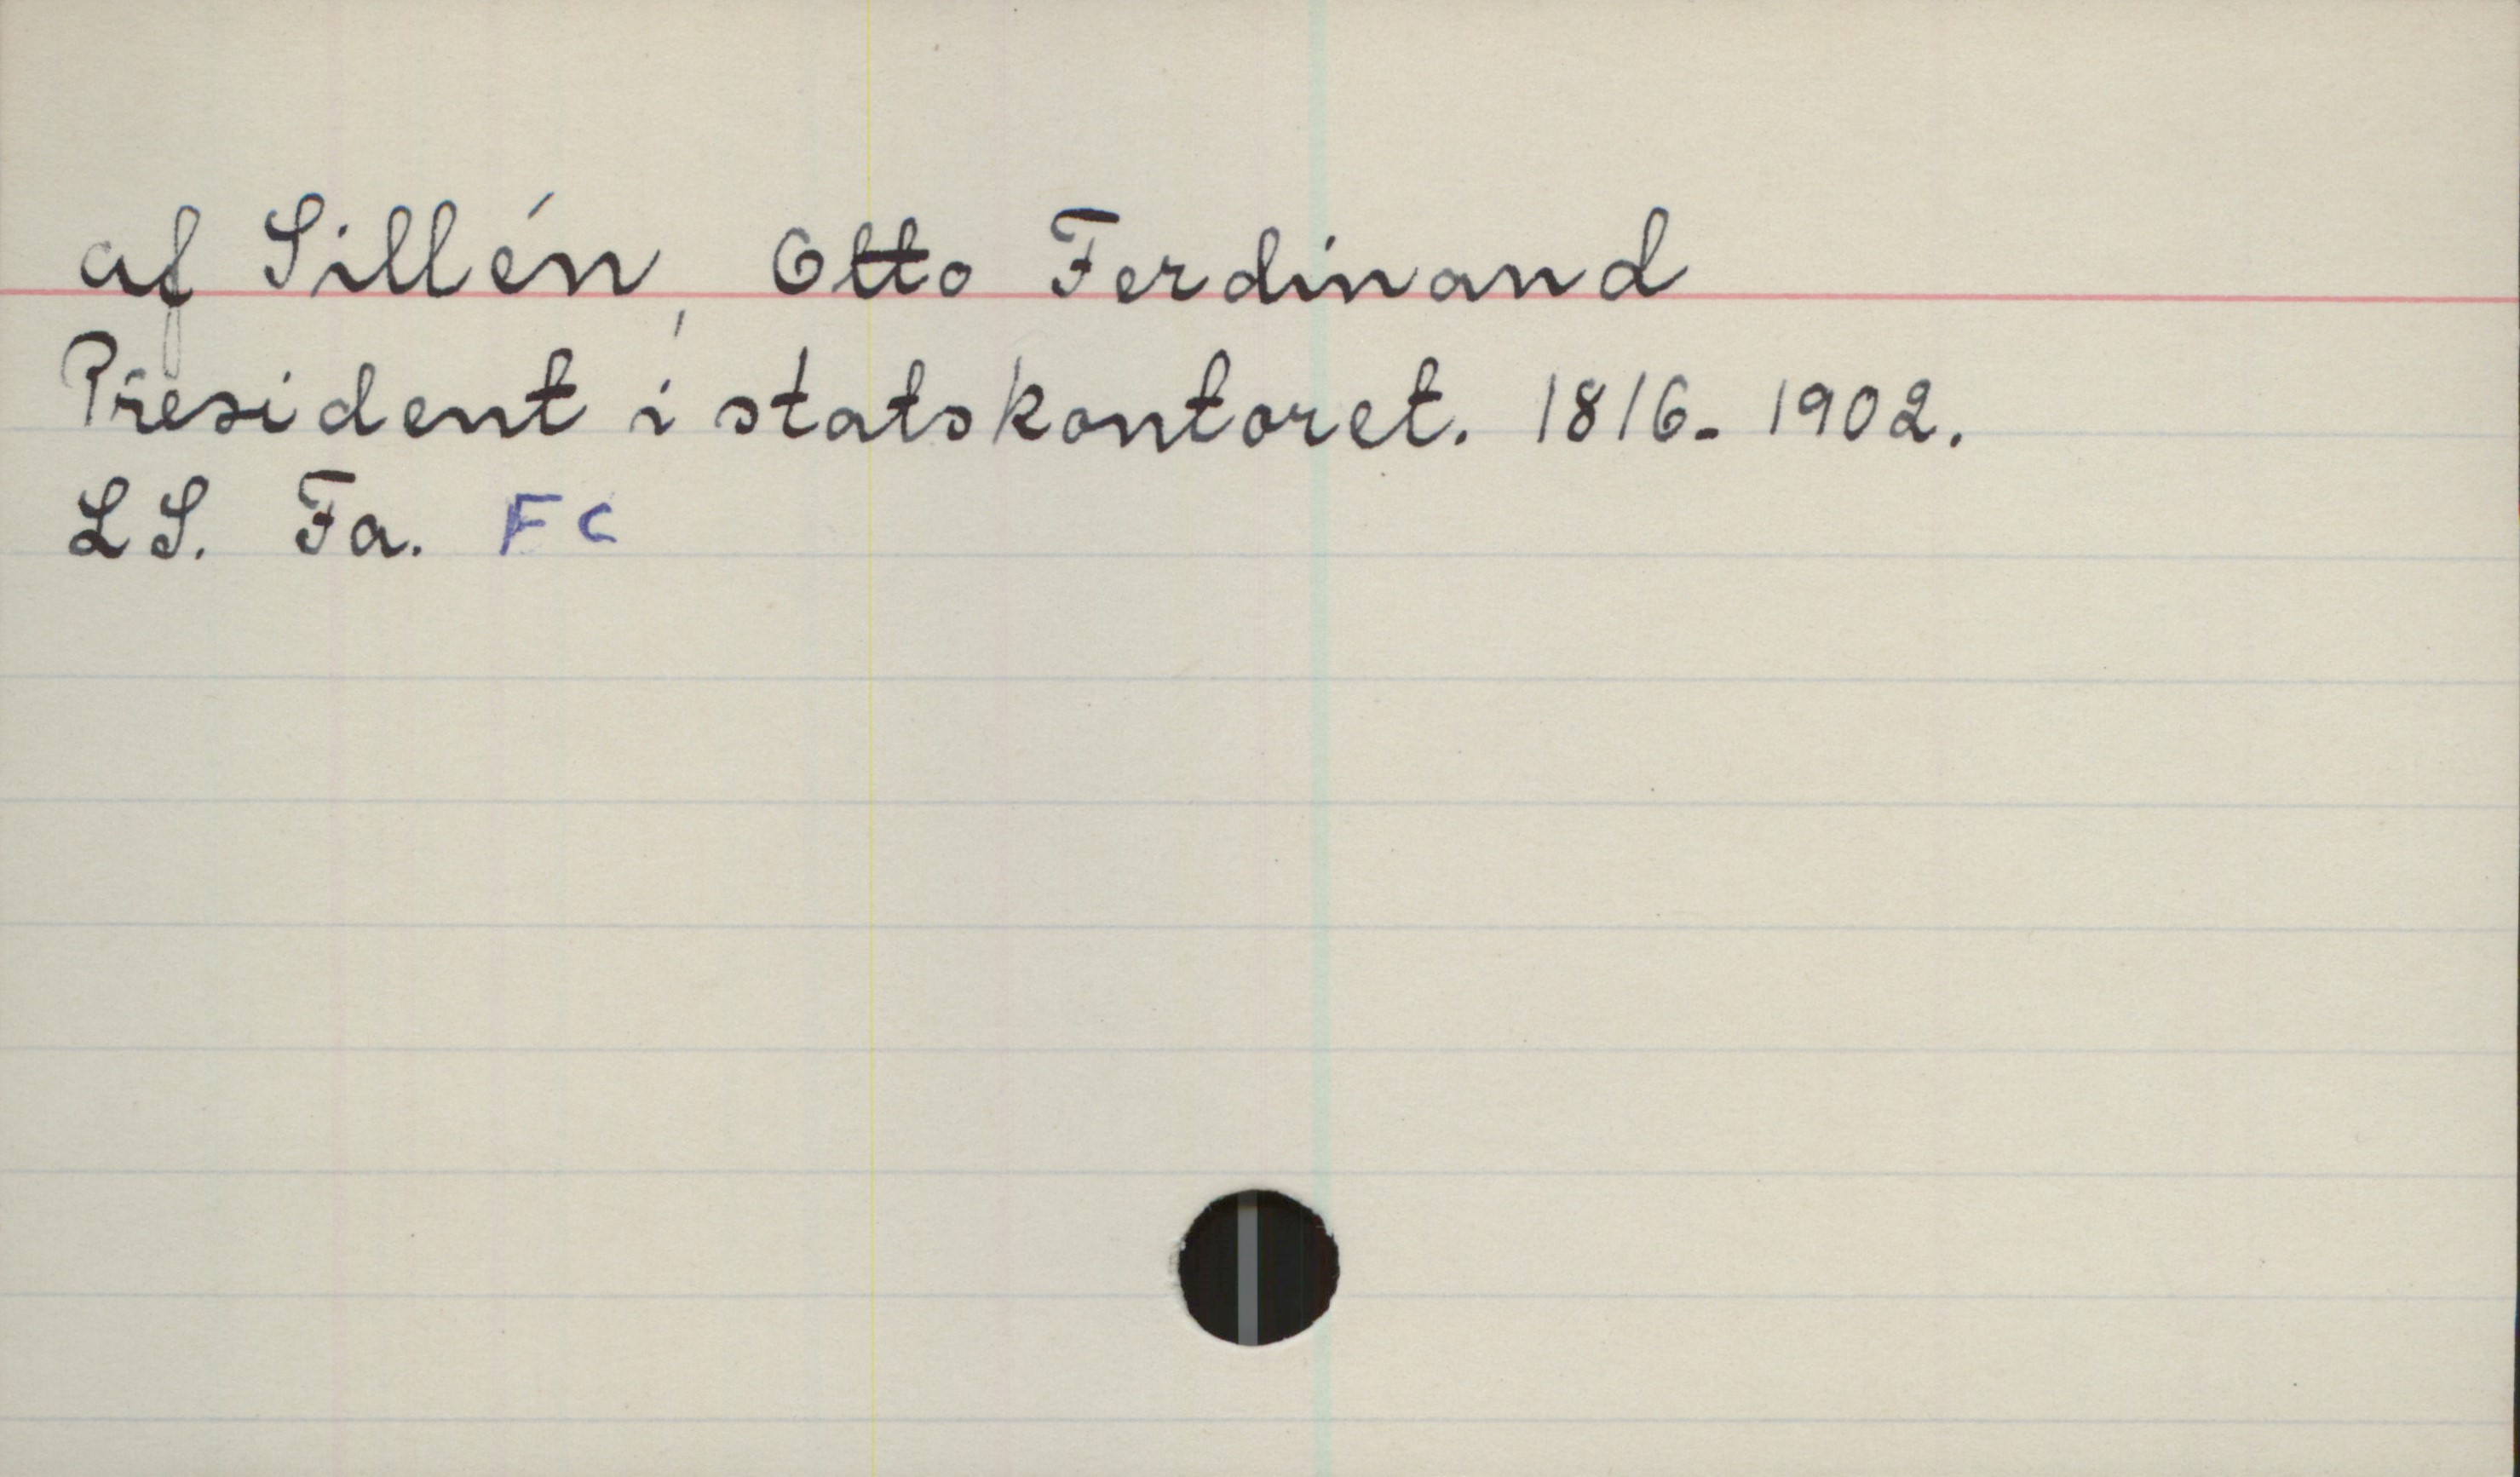 af Sillén, Otto Ferdinand
President i statskontoret. 1816-1902.
LS. Fa. FC